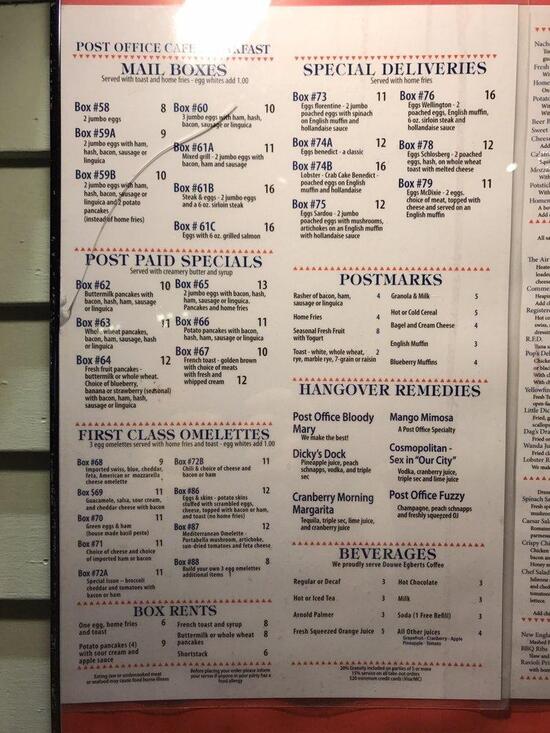 POST OFFICE CAFE
MAIL BOXES
Served with toast and home fries - egg whites add 1.00
Box #58 8
2 jumbo eggs
Box #59A 9
2 jumbo eggs with ham,
hash, bacon, sausage or
linguica
Box #59B 10
2 jumbo eggs with ham,
hash, bacon, sausage or
linguica and 2 potato
pancakes
(instead of home fries)
Box #60 10
3 jumbo eggs with ham, hash,
bacon, sausage or linguica
Box #61A 11
Mixed grill - 2 jumbo eggs with
bacon, ham and sausage
Box #61B 16
Steak & eggs - 2 jumbo eggs
and a 6 oz. sirloin steak
Box # 61C 16
Eggs with 6 oz. grilled salmon
POST PAID SPECIALS
Served with creamery butter and syrup
Box #62 10
Buttermilk pancakes with
bacon, hash, ham, sausage
or linguica
Box #63 11
Whole wheat pancakes,
bacon, ham, hash, sausage
or linguica
Box #64 12
Fresh fruit pancakes -
buttermilk or whole wheat.
Choice of blueberry,
banana or strawberry (seasonal)
with bacon, ham, hash,
sausage or linguica
Box #65 13
2 jumbo eggs with bacon, hash,
ham, sausage or linguica.
Pancakes and home fries
Box #66 11
Potato pancakes with bacon,
hash, ham, sausage or linguica
Box #67 10
French toast - golden brown
with choice of meats
with fresh and
whipped cream 12
FIRST CLASS OMELETTES
3 egg omelettes served with home fries and toast - egg whites add 1.00
Box #68 9
Imported swiss, blue, cheddar,
feta, American or mozzarella
cheese omelette
Box S69 11
Guacamole, salsa, sour cream,
and cheddar cheese with bacon
Box #70 11
Green eggs & ham
(house made basil pesto)
Box #71 11
Choice of cheese and choice
of imported ham or bacon
Box #72A 11
Special Issue – broccoli
cheddar and tomatoes with
bacon or ham
Box #72B 11
Chili & choice of cheese and bacon
or ham
Box #86 12
Eggs & skins - potato skins
stuffed with scrambled eggs,
cheese, topped with bacon or ham,
and toast (no home fries)
Box #87 12
Mediterranean Omelette -
Portabella mushroom, artichoke,
sun-dried tomatoes and feta cheese
Box #88 8
Build your own 3 egg omelettes
additional items 1
BOX RENTS
One egg, home fries 6
and toast
Potato pancakes (4) 9
with sour cream and
apple sauce
French toast and syrup 8
Buttermilk or whole wheat 8
pancakes
Shortstack 6
Eating raw or undercooked meat
or seafood may cause food borne illness
Before placing your order please inform
your server if anyone in your party has a
food allergy
SPECIAL DELIVERIES
Served with home fries
Box #73 11
Eggs florentine - 2 jumbo
poached eggs with spinach
on English muffin and
hollandaise sauce
Box #74A 12
Eggs benedict - a classic
Box #74B 16
Lobster - Crab Cake Benedict -
poached eggs on English
muffin and hollandaise
Box #75 12
Eggs Sardou - 2 jumbo
poached eggs with mushrooms,
artichokes on an English muffin
with hollandaise sauce
Box #76 16
Eggs Wellington - 2
poached eggs, English muffin,
6 oz. sirloin steak and
hollandaise sauce
Box #78 12
Eggs Schlosberg - 2 poached
eggs, hash, on whole wheat
toast with melted cheese
Box #79 11
Eggs McDixie - 2 eggs.
choice of meat, topped with
cheese and served on an
English muffin
POSTMARKS
Rasher of bacon, ham, 4
sausage or linguica
Home Fries 4
Seasonal Fresh Fruit 8
with Yogurt
Toast - white, whole wheat, 2
rye, marble rye, 7-grain or raisin
Granola & Milk 5
Hot or Cold Cereal 5
Bagel and Cream Cheese 4
English Muffin 3
Blueberry Muffins 4
HANGOVER REMEDIES
Post Office Bloody
Mary
We make the best!
Dicky's Dock
Pineapple juice, peach
schnapps, vodka, and triple
sec
Cranberry Morning
Margarita
Tequila, triple sec, lime juice,
and cranberry juice
Mango Mimosa
A Post Office Specialty
Cosmopolitan -
Sex in "Our City"
Vodka, cranberry juice,
triple sec and lime juice
Post Office Fuzzy
Champagne, peach schnapps
and freshly squeezed OJ
BEVERAGES
We proudly serve Douwe Egberts Coffee
Regular or Decaf 3
Hot or Iced Tea 3
Arnold Palmer 3
Fresh Squeezed Orange Juice 5
Hot Chocolate 3
Milk 3
Soda (1 Free Refill) 3
All Other Juices 4
Grapefruit - Cranberry - Apple
Pineapple - Tomato
20% Gratuity included on parties of 5 or more
15% service on all take out orders
$20 minimum credit cards (Visa/MC)